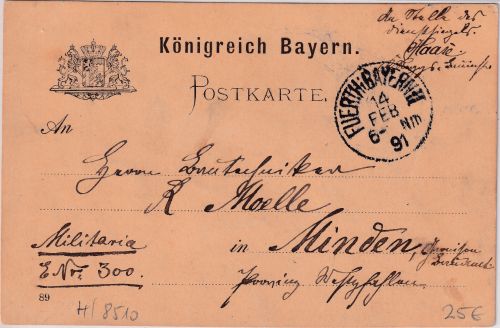 An Stelle des
Dienstsiegels
Königreich Bayern.
POSTKARTE.
FUERTH.BAYERN II
14
FEB
6- Nm
91
An
Herrn Bautechniker
R Moelle
Militaria
in Minden,
E.Nr. 300.
Provinz Westphalen
89
H/8510
25€